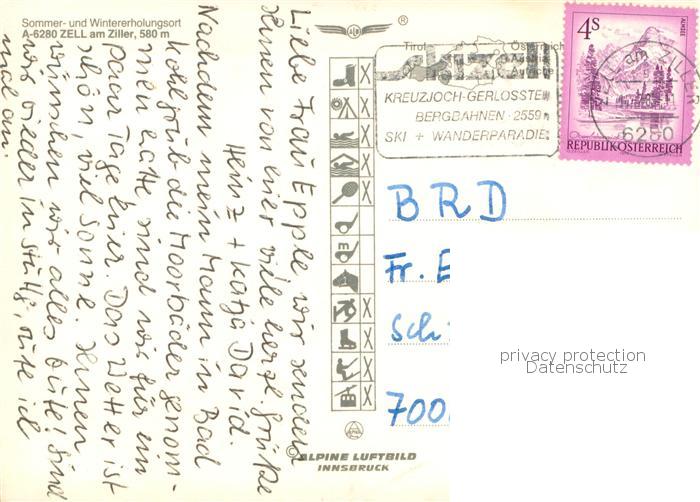 Sommer- und Wintererholungsort
A-6280 ZELL am Ziller, 580 m
®
Tirol
Österreich
Austria
KREUZJOCH-GERLOSSTEIN
BERGBAHNEN · 2559
SKI + WANDERPARADIES
4S
ALMSEE
REPUBLIK ÖSTERREICH
6280
Liebe Frau Epple wir senden
Ihnen von hier viele herzl. Grüße
Heinz + Katja David.
Nachdem mein Mann in Bad
hohegrub die Moorbäder genom-
men hatte sind wir für ein
paar Tage hier. Das Wetter ist
schön, viel Sonne. Ihnen
wünschen wir alles Gute! Sind
wir wieder in Stuttg. rufe ich
mal an.
BRD
Fr. E
Sch
700
privacy protection
Datenschutz
ALPINE LUFTBILD
INNSBRUCK